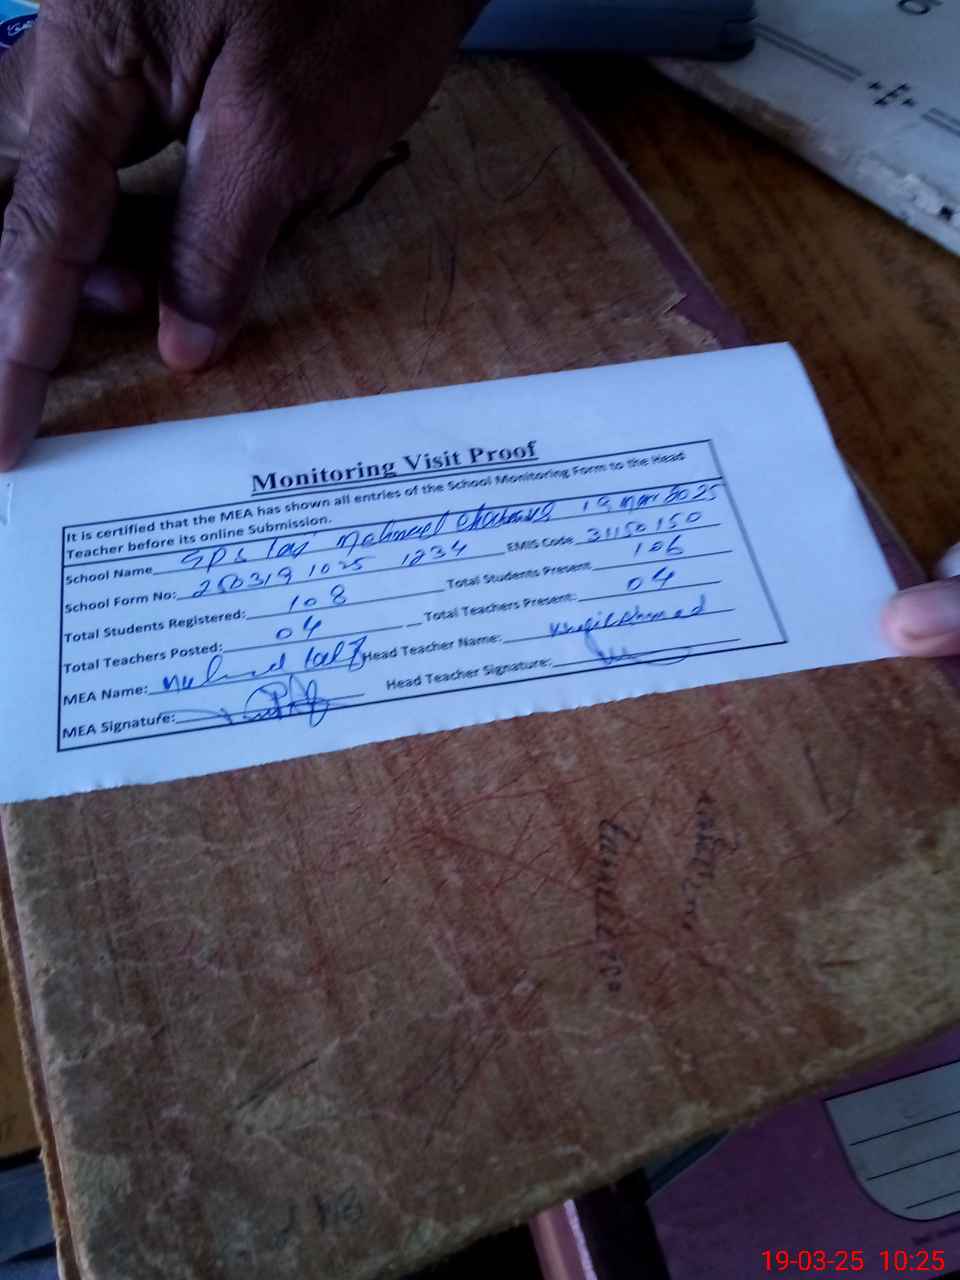 Monitoring Visit Proof
It is certified that the MEA has shown all entries of the School Monitoring Form to the Head
Teacher before its online Submission.
School Name GPS 19 Mar 2025
School Form No: 250319 1025 1234 EMIS Code 31150150
Total Students Registered: 108 Total Students Present 106
Total Teachers Posted: 04 Total Teachers Present: 04
MEA Name: Head Teacher Name: Ahmad
MEA Signature: Head Teacher Signature:
19-03-25 10:25